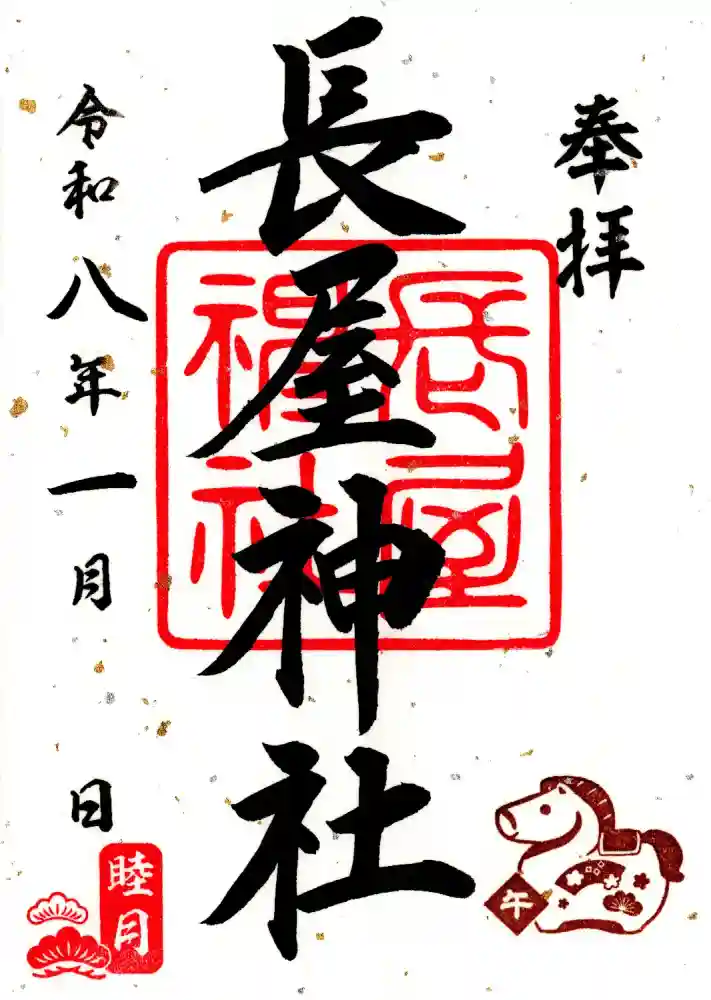 奉拝
長屋神社
長屋神社
令和八年一月 日
睦月
午